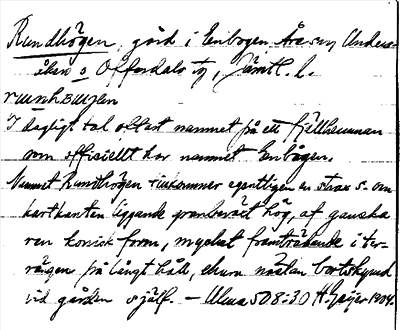 Rundhögen, gård i Enbogen Åre sn, Unders-
åkers o Offerdals tg, Jämtl. l.
I dagligt tal oftast namnet på ett fjällhemman
som officiellt har namnet Enbågen.
Namnet Rundhögen tillkommer egentligen en strax s. om
kartkanten liggande granbeväxt hög, af ganska
ren konisk form, mycket framträdande i ter-
rängen på långt håll, ehuru nästan bortskymd
vid gården själf. – Ulma 508:30 H Geijer 1904.